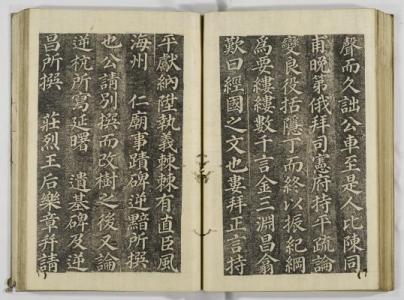 聲而久詘公車至是人比陳同
甫晚第俄拜司憲府持平疏論
變良役括隱丁而終以振紀綱
爲要縷縷數千言金三淵昌翕
歎曰經國之文也婁拜正言持
平獻納陞執義棘棘有直臣風
海州 仁廟事蹟碑逆黯所撰
也公請別撰而改樹之後又論
逆杭所寫延曙 遺基碑及逆
昌所撰 莊烈王后樂章幷請